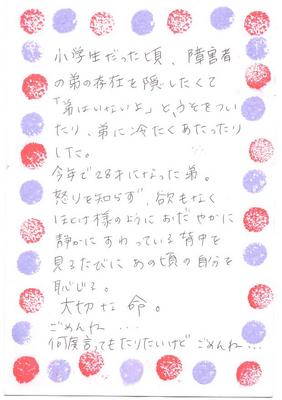 小学生だった頃、障害者
の弟の存在を隠したくて
「弟はいないよ」と、うそをつい
たり、弟に冷たくあたったり
した。
今年で28才になった弟。
怒りを知らず、欲もなく
ほとけ様のように おだやかに
静かに すわっている 背中を
見るたびに あの頃の自分を
恥じる。
大切な 命。
ごめんね・・・
何度言っても たりないけど ごめんね・・・